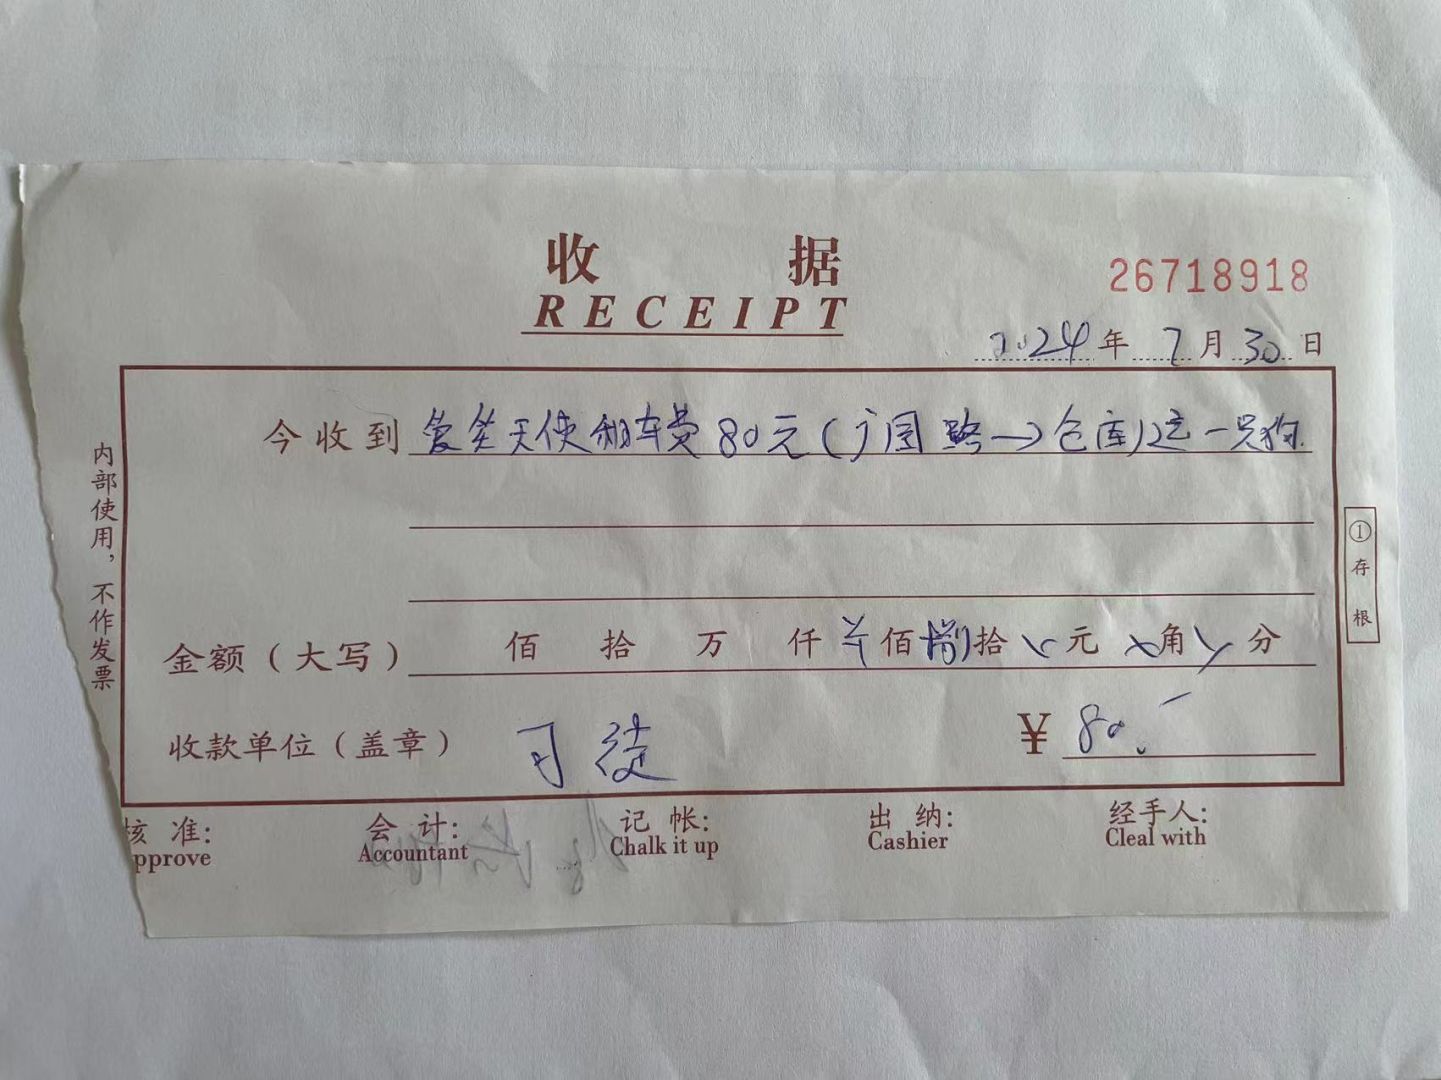 收 据
RECEIPT
26718918
2024年7月30日
今收到 爱笑天使租车费80元(广园路→仓库)运一只狗.
金额(大写) 佰 拾 万 仟 ⊗佰捌拾 元 角 分
收款单位(盖章) 司徒 ¥ 80.-
核 准: 会 计: 记 帐: 出 纳: 经手人:
pprove Accountant Chalk it up Cashier Cleal with
内部使用,不作发票
①存根